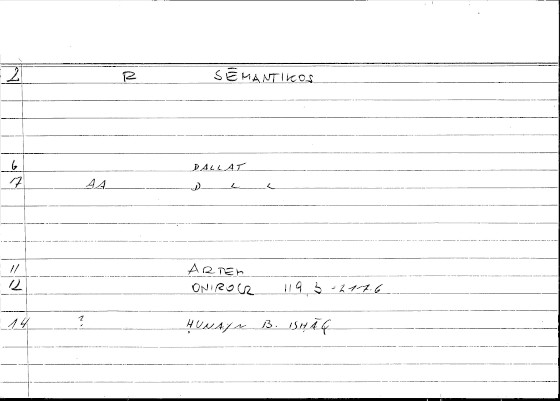 2 R SĒMANTIKOS
6 DALLAT
7 AA D L L
11 ARTEM
12 ONIROCR 119, 5 - 217.6
14 ? ḤUNAYN B. ISḤĀQ